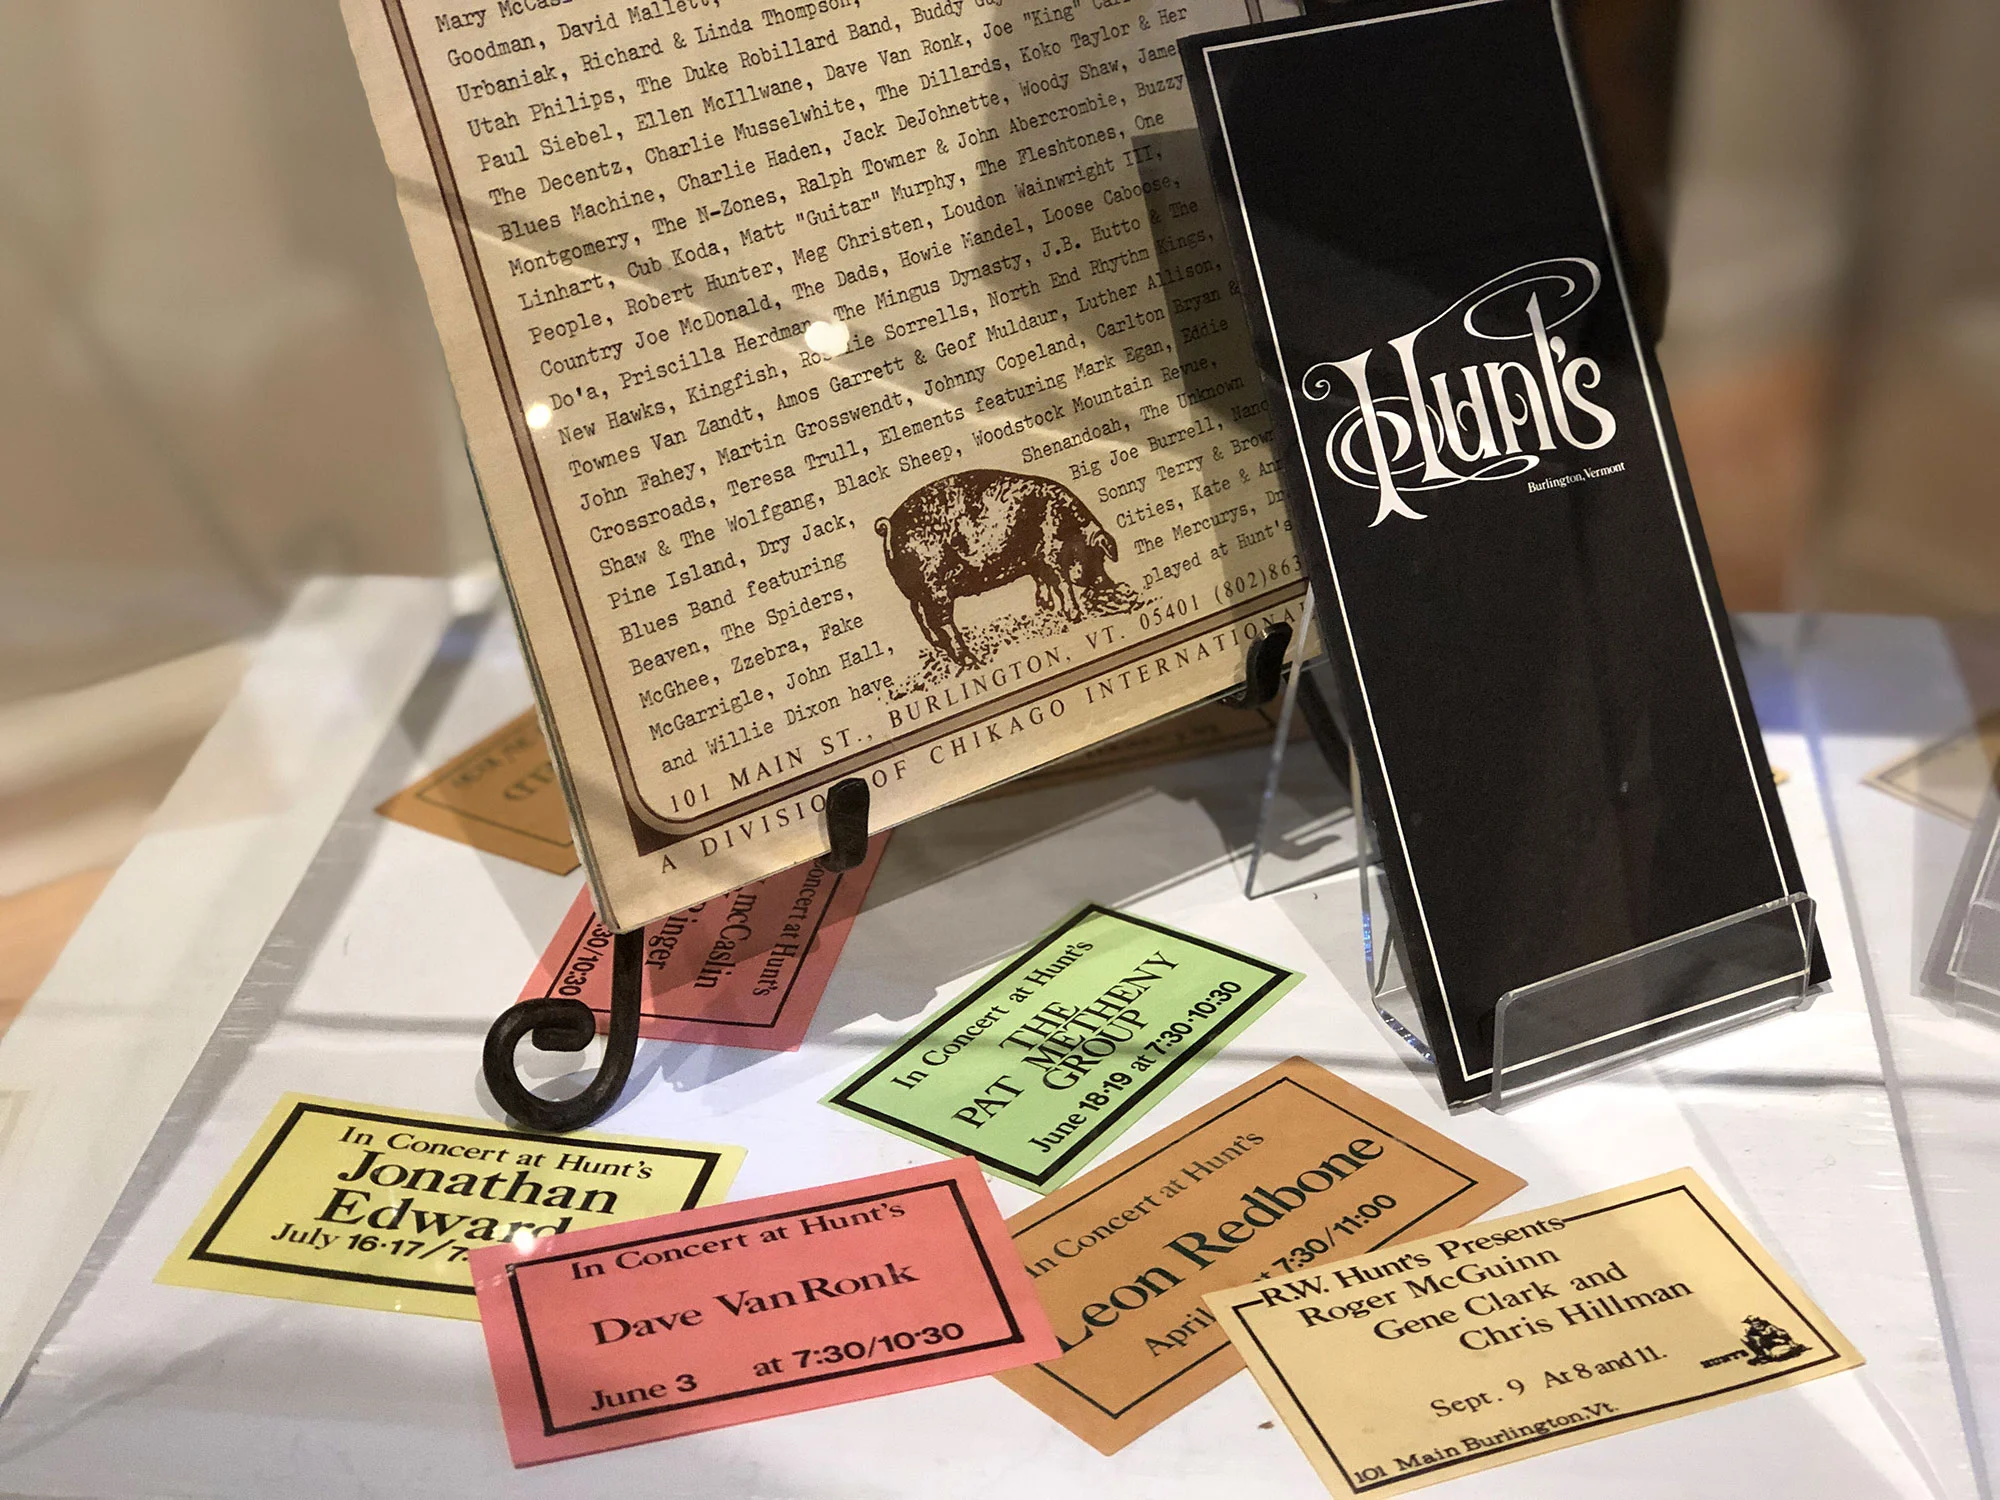 Mary McCas
Goodman, David Mallett,
Urbaniak, Richard & Linda Thompson,
Utah Philips, The Duke Robillard Band, Buddy Guy
Paul Siebel, Ellen McIllwane, Dave Van Ronk, Joe "King" Car
The Decentz, Charlie Musselwhite, The Dillards, Koko Taylor & Her
Blues Machine, Charlie Haden, Jack DeJohnette, Woody Shaw, James
Montgomery, The N-Zones, Ralph Towner & John Abercrombie, Buzzy
Linhart, Cub Koda, Matt "Guitar" Murphy, The Fleshtones, One
People, Robert Hunter, Meg Christen, Loudon Wainwright III,
Country Joe McDonald, The Dads, Howie Mandel, Loose Caboose,
Do'a, Priscilla Herdman, The Mingus Dynasty, J.B. Hutto & The
New Hawks, Kingfish, Ro lie Sorrells, North End Rhythm Kings,
Townes Van Zandt, Amos Garrett & Geof Muldaur, Luther Allison,
John Fahey, Martin Grosswendt, Johnny Copeland, Carlton Bryan &
Crossroads, Teresa Trull, Elements featuring Mark Egan, Eddie
Shaw & The Wolfgang, Black Sheep, Woodstock Mountain Revue,
Pine Island, Dry Jack, Shenandoah, The Unknown
Blues Band featuring Big Joe Burrell, Nanc
Beaven, The Spiders, Sonny Terry & Brown
McGhee, Zzebra, Fake Cities, Kate & Ann
McGarrigle, John Hall, The Mercurys, Dr.
and Willie Dixon have played at Hunt's
101 MAIN ST., BURLINGTON, VT. 05401 (802)863
A DIVISION OF CHIKAGO INTERNATIONAL
Hunt's
Burlington, Vermont
oncert at Hunt's
mcCaslin
inger
30/10:30
In Concert at Hunt's
THE
PAT METHENY
GROUP
June 18·19 at 7:30·10:30
In Concert at Hunt's
Jonathan
Edward
July 16·17/7
In Concert at Hunt's
Dave Van Ronk
June 3 at 7:30/10:30
In Concert at Hunt's
Leon Redbone
April at 7:30/11:00
R.W. Hunt's Presents
Roger McGuinn
Gene Clark and
Chris Hillman
HUNT'S
Sept. 9 At 8 and 11.
101 Main Burlington, Vt.